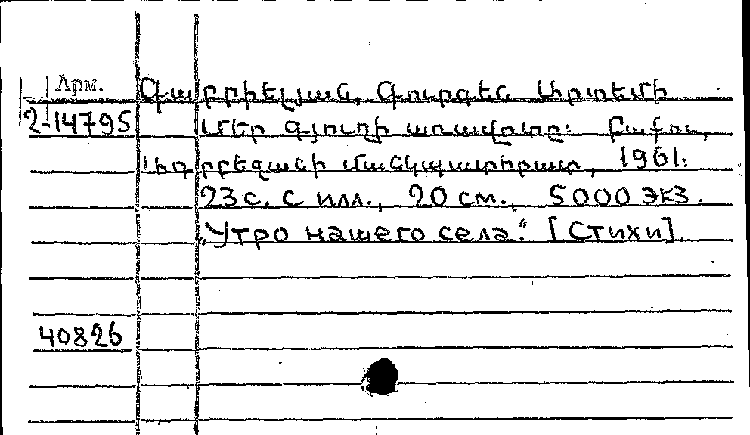 Арм.
Գաբրիելյան, Գուրգեն Արտեմի
2-14795
Մեր գյուղի առավոտը: Բաքու,
Ադրբեջանի մանկպատհրատ, 1961.
23 с. с илл., 20 см., 5000 экз.
„Утро нашего села." [Стихи].
40826